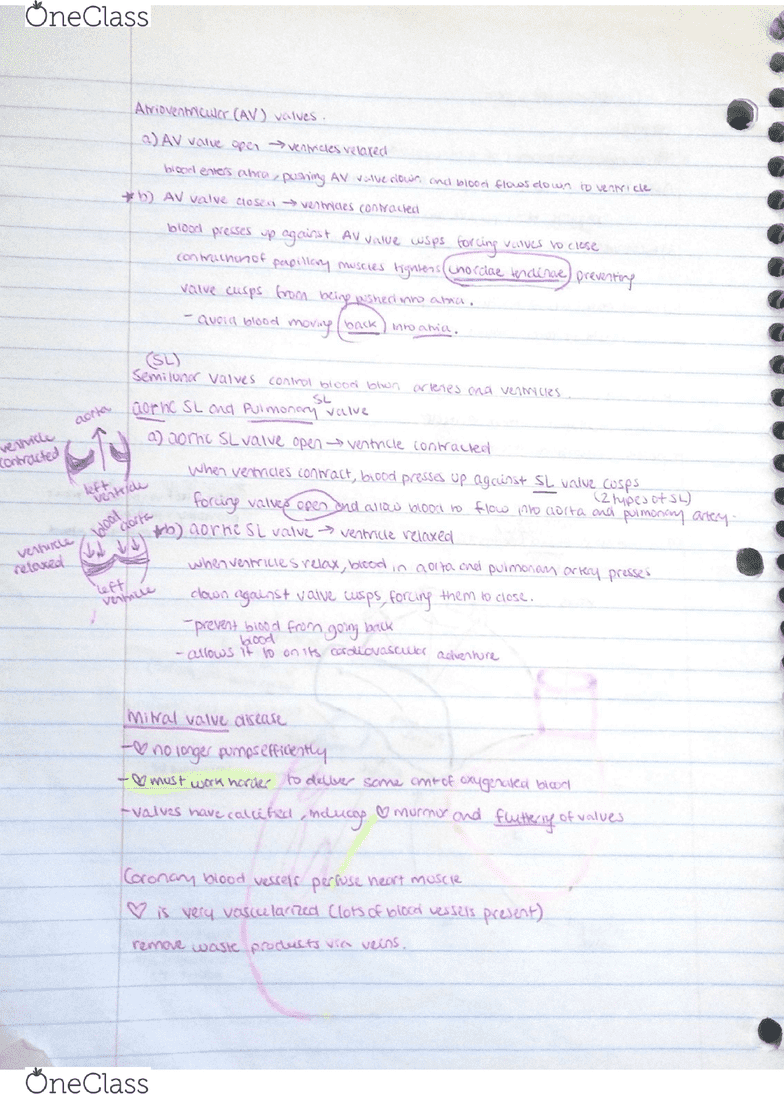 OneClass
Atrioventricular (AV) valves.
a) AV valve open → ventricles relaxed
blood enters atria, pushing AV valve down and blood flows down to ventricle
*b) AV valve closed → ventricles contracted
blood presses up against AV valve cusps forcing valves to close
contraction of papillary muscles tightens chordae tendinae preventing
valve cusps from being pushed into atria.
- avoid blood moving back into atria.
(SL)
Semilunar valves control blood btwn arteries and ventricles.
aortic SL and Pulmonary SL valve
a) aortic SL valve open → ventricle contracted
when ventricles contract, blood presses up against SL valve cusps
(2 types of SL)
forcing valves open and allow blood to flow into aorta and pulmonary artery.
*b) aortic SL valve → ventricle relaxed
when ventricles relax, blood in aorta and pulmonary artery presses
down against valve cusps, forcing them to close.
- prevent blood from going back
blood
- allows it to on its cardiovascular adventure
aorta
ventricle
contracted
left
ventricle
blood
aorta
ventricle
relaxed
left
ventricle
Mitral valve disease
- ♡ no longer pumps efficiently
- ♡ must work harder to deliver same amt of oxygenated blood
- valves have calcified, inducing ♡ murmur and fluttering of valves
Coronary blood vessels perfuse heart muscle
♡ is very vascularized (lots of blood vessels present)
remove waste products via veins.
OneClass